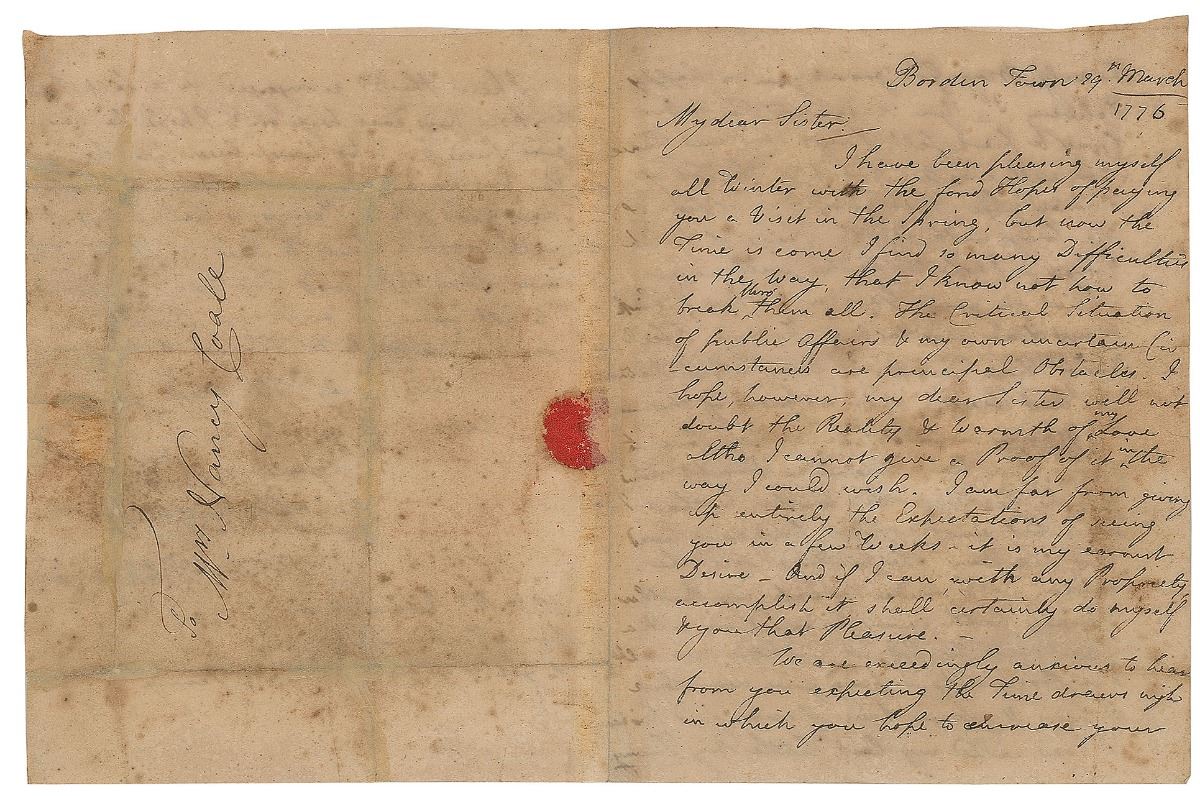 To
Mrs. Nancy Coale
Borden Town 29th March
1776
My dear Sister.
I have been pleasing myself
all Winter with the fond Hopes of paying
you a Visit in the Spring, but now the
Time is come I find so many Difficulties
in the Way, that I know not how to
break thro' them all. The Critical Situation
of public Affairs & my own uncertain Cir
cumstances are principal Obstacles. I
hope, however, my dear Sister will not
doubt the Reality & Warmth of my Love
altho I cannot give a Proof of it in the
way I could wish. I am far from giving
up entirely the Expectations of seeing
you in a few Weeks - it is my earnest
Desire - And if I can, with any Propriety,
accomplish it shall certainly do myself
& you that Pleasure. -
We are exceedingly anxious to hear
from you expecting the Time draws nigh
in which you hope to increase your